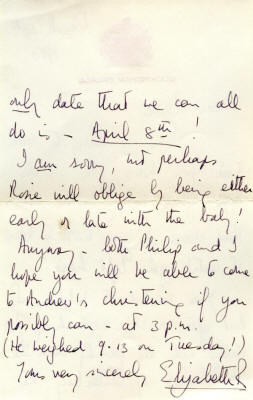 only date that we can all
do is - April 8th !
I am sorry, but perhaps
Rosie will oblige by being either
early or late with the baby!
Anyway - both Philip and I
hope you will be able to come
to Andrew's christening if you
possibly can - at 3 p.m.
(He weighed 9.13 on Tuesday!)
Yours very sincerely Elizabeth R